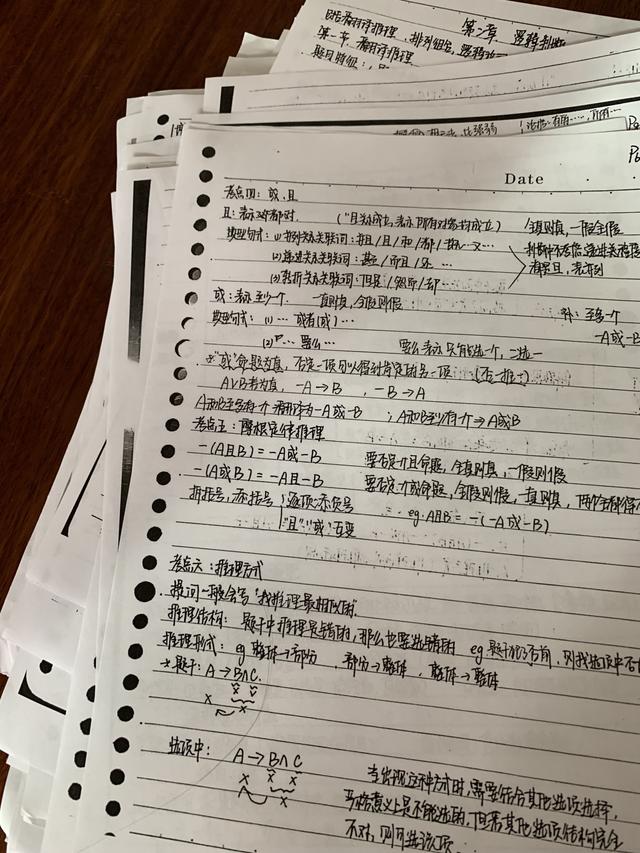 第二章 逻辑判断
包括翻译推理，排列组合，逻辑论
第一节 翻译推理
题目特征：
Date
考点四：或、且
且：表示对都对. ("且"为成立，表示所有对象均成立) 全真则真，一假全假
典型句式：(1) 并列关系关联词：并且/且/和/都/一边…又…
(2) 递进关系关联词：甚至/而且/还…
(3) 转折关系关联词：但是/然而/却…
或：表示至少一个. 一真则真，全假则假 至多一个
典型句式：(1) … 或者(或) … -A或-B
(2) … 要么… 要么表示只有能选一个，二选一
"或"命题为真，否定一项可以得到肯定的另一项 (否一推一)
A∨B若为真，-A→B，-B→A
A和B至多有一个 翻译为-A或-B ；A和B至少有一个⇒A或B
考点五：摩根定律推理
-(A且B)=-A或-B 要否定一个且命题，全真则真，一假则假
-(A或B)=-A且-B 要否定一个或命题，全假则假，一真则真，两个全都得
拆括号，添括号；逐项添负号 eg: A且B=-(-A或-B)
"且""或"互变
考点六：推理方式
提问一般会写"找推理最相似的"
推理结构：题干中推理是错的，那么也要选错的 eg 题干犯了否前，则找选项中否
推理形式：eg 整体→部分，部分→整体，整体→整体
题干：A→B∧C.
选项中：A→B∧C
当出现这种方式时，需要结合其他选项选择，
严格意义上是不能选的，但若其他选项结构完全
不对，则可选该项.